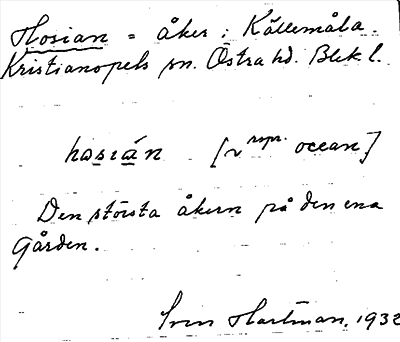 Hosian = åker i Källemåla.
Kristianopels sn. Östra hd. Blekl.
hosián [v rspr. ocean]
Den största åkern på den ena
Gården.
Sven Hartman, 1932